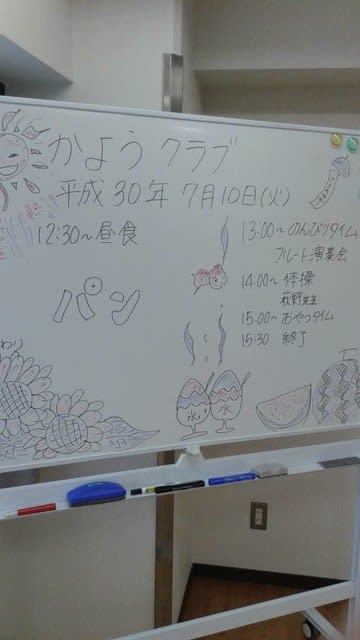 かようクラブ
平成30年 7月10日(火)
12:30~昼食
パン
13:00~のんびりタイム
フルート演奏会
14:00~体操
萩野先生
15:00~おやつタイム
15:30 終了
わり
氷
氷